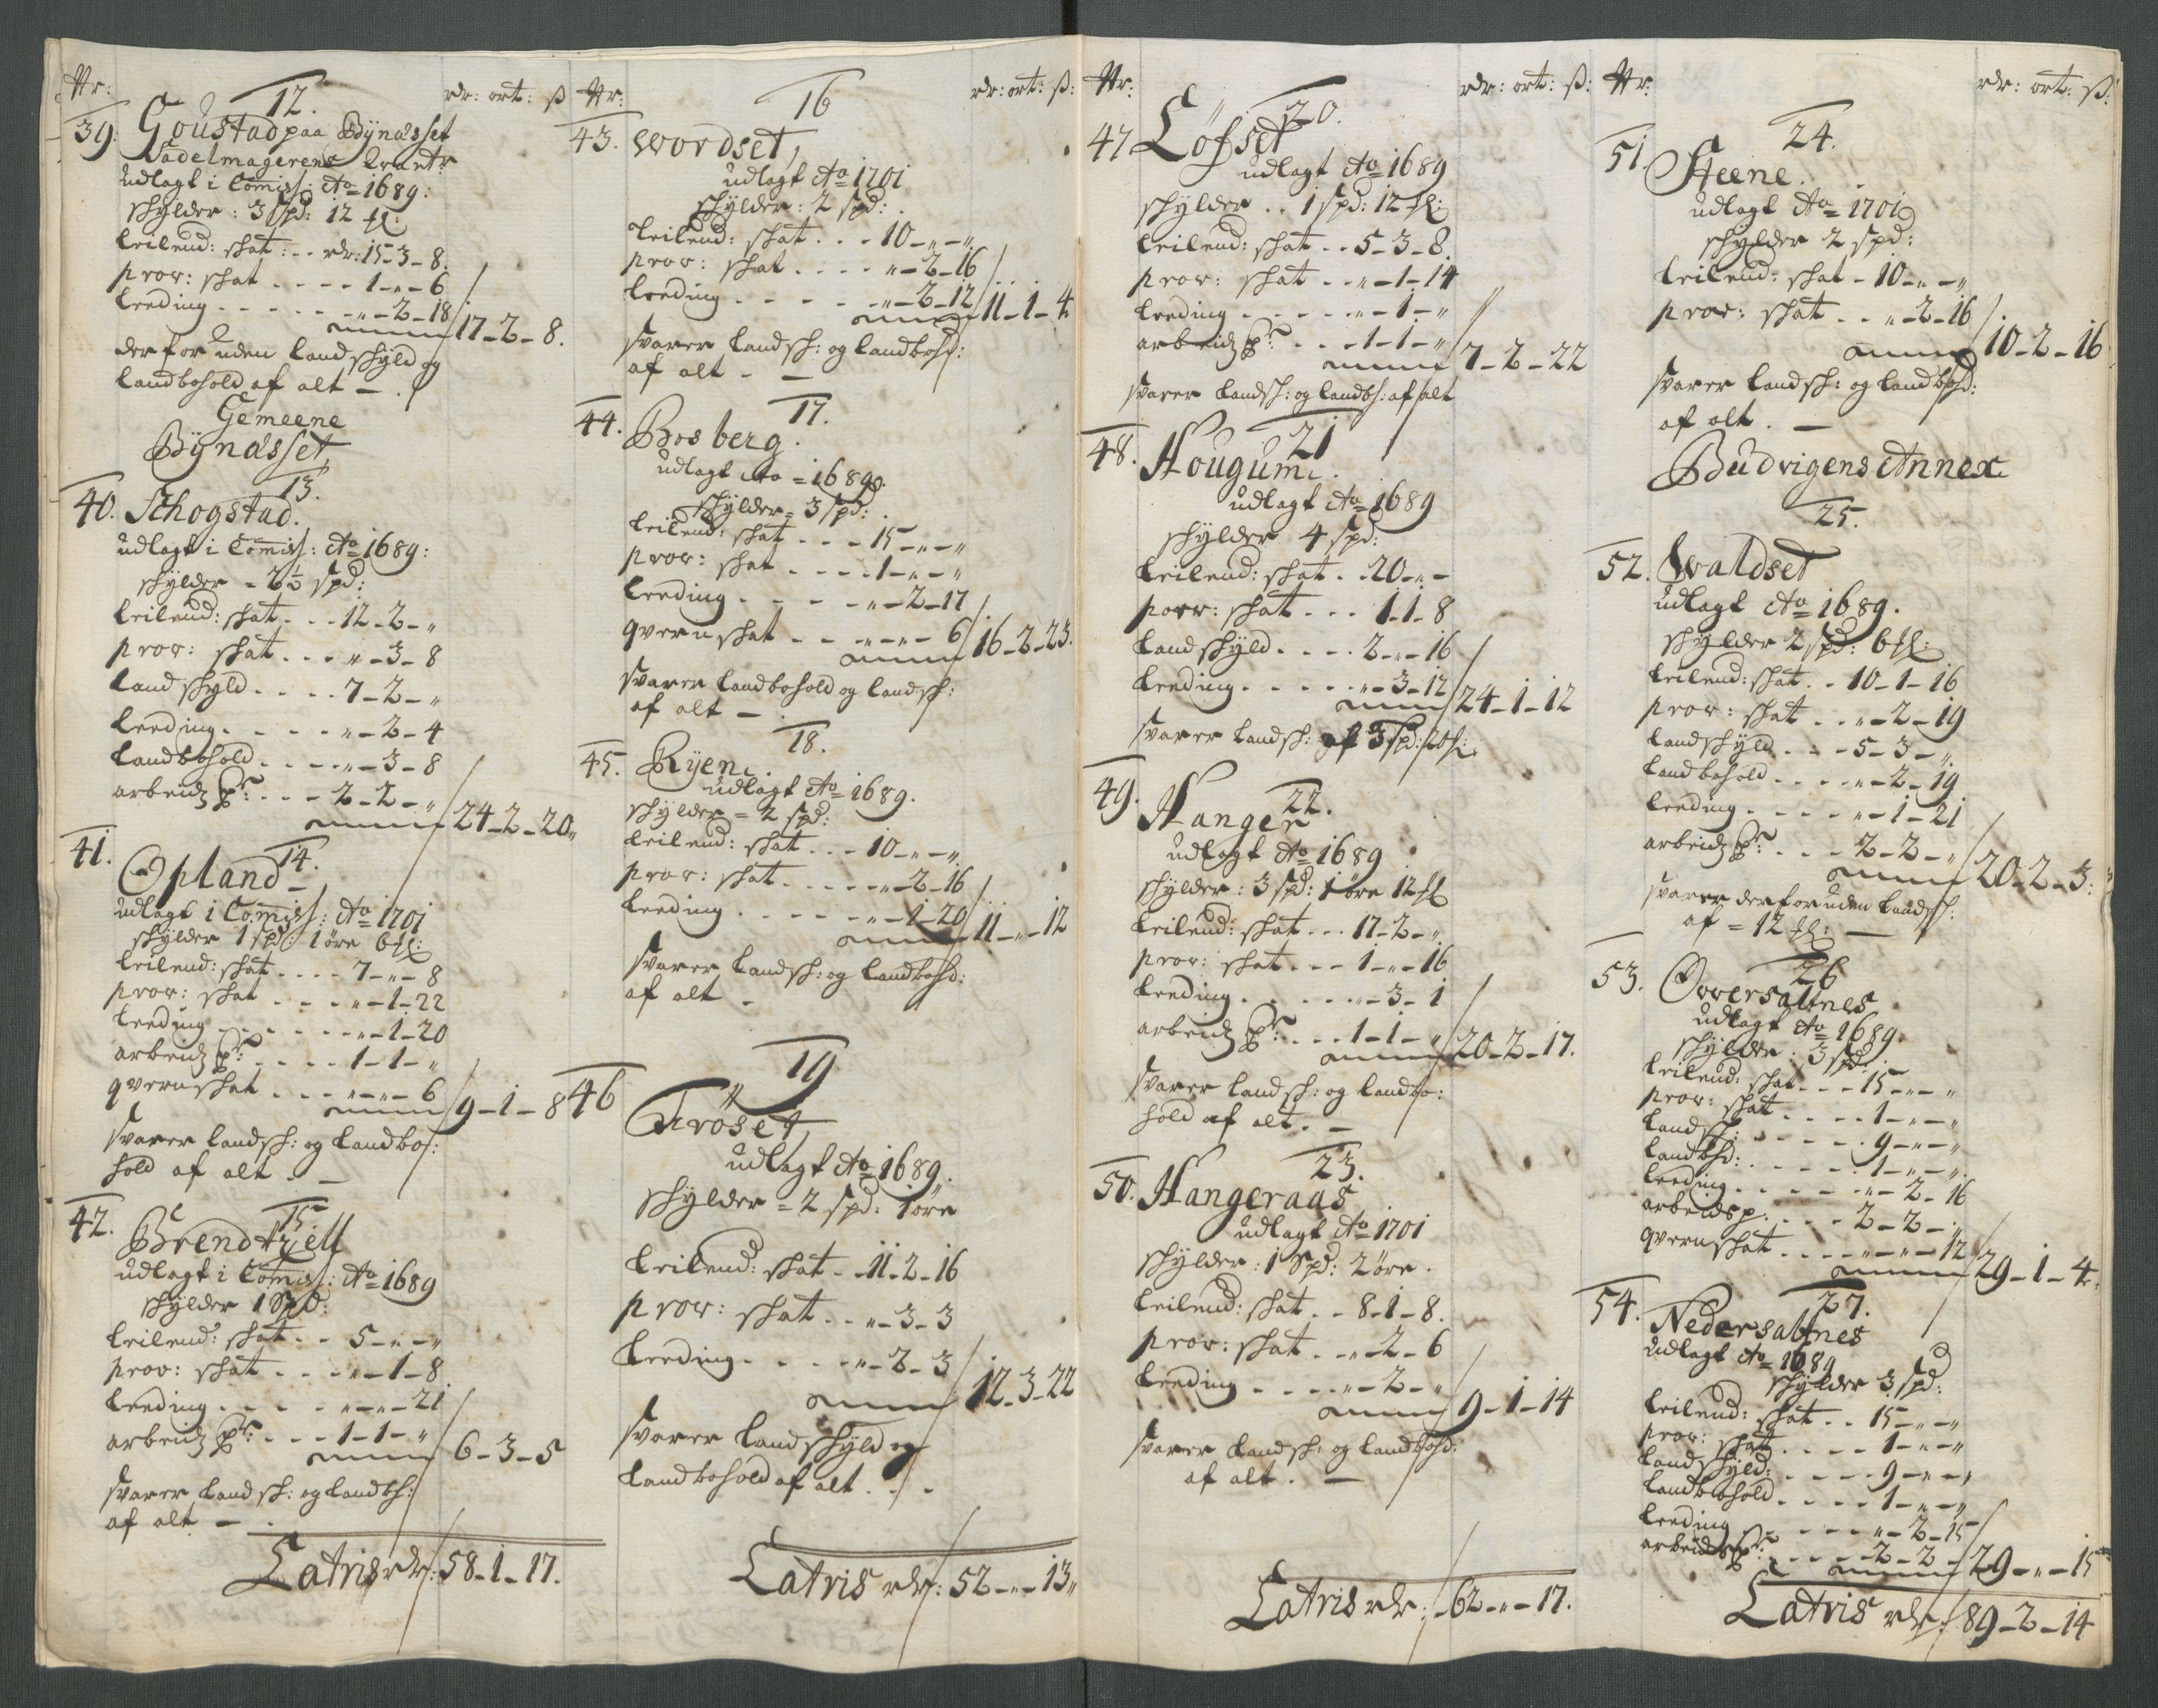 Nr: rdr: ort: ß
12.
39. Goustad paa Bÿnæsset
Sadelmagerens Qvarter
udlagt i Comiss: Ao 1689:
schÿlder: 3 spd: 12 sl:
leilend: schat: .. rdr: 15-3-8.
prov: schat .... 1-"-6
leeding ..... "-2-18
17-2-8.
derfor uden landschÿld og
landbohold af alt -.
Gemeene
Bÿnæsset
13.
40. Schogstad.
udlagt i Comiss: Ao 1689:
schÿlder = 2½ spd:
leilend: schat ... 12-2-"
prov: schat ... "-3-8
landschÿld .... 7-2-"
leeding ..... "-2-4
landbohold .... "-3-8
arbeidz p: ... 2-2-"
24-2-20"
14.
41. Opland
udlagt i Comiss: Ao 1701
schÿlder 1 spd: 1 öre 6 sl:
leilend: schat .... 7-"-8
prov: schat .... "-1-22
leeding ...... "-1-20
arbeidz p: .... 1-1-"
qvernschat ... "-"-6
9-1-8
svarer landsch: og landbo:
hold af alt . -
15
42. Brendtzell
udlagt i Comiss: Ao 1689
schÿlder 1 Spd:
leilend: schat .. 5-"-"
prov: schat ... "-1-8
leeding .... "-"-21
arbeidz p: ... 1-1-"
6-3-5
svarer landsch: og landbh:
af alt -.
Latris rdr: 58-1-17.
Nr: rdr: ort: ß:
16
43. Wordset,
udlagt Ao 1701
schÿlder: 2 spd:
leilend: schat ... 10-"-"
prov: schat .... "-2-16
leeding ..... "-2-12
11-1-4
svarer landsch: og landbohd:
af alt - -
17.
44. Bosberg.
udlagt Ao = 1689.
schÿlder = 3 spd:
leilend: schat ... 15-"-"
prov: schat .... 1-"-"
leeding .... "-2-17
qvernschat .. "-"-6
16-2-23.
svarer landbohold og landsch:
af alt -.
18.
45. Rÿen.
udlagt Ao 1689.
schÿlder = 2 spd:
leilend: schat ... 10-"-"
prov: schat ..... "-2-16
leeding ..... "-1-20
11-"-12
svarer landsch: og landbohd:
af alt -
19
46 Fröset,
udlagt Ao 1689.
schÿlder = 2 spd: 1 öre
leilend: schat .. 11-2-16
prov: schat .. "-3-3
leeding .... "-2-3
12-3-22
svarer landschÿld og
landbohold af alt . .
Latris rdr: 52-"-13"
Nr: rdr: ort: ß:
20.
47 Löfset
udlagt Ao 1689
schÿlder .. 1 spd: 12 sl:
leilend: schat .. 5-3-8.
prov: schat .. "-1-14
leeding ..... "-1-"
arbeidz p: ... 1-1-"
7-2-22
svarer landsch: og landbh: af alt
21
48. Hougum.
udlagt Ao 1689
schÿlder 4 spd:
leilend: schat .. 20-"-
porr: schat ... 1-1-8
landschÿld .... 2-"-16
leeding ..... "-3-12
24-1-12
svarer landsch: af 3 spd:
22.
49. Hanger
udlagt Ao 1689
schÿlder: 3 spd: 1 öre 12 sl
leilend: schat ... 17-2-"
prov: schat ... 1-"-16
leeding ..... "-3-1
arbeidz p: ... 1-1-"
20-2-17.
svarer landsch: og landbo:
hold af alt. -
23.
50. Hangeraas
udlagt Ao 1701
schÿlder: 1 Spd: 2 öre.
leilend: schat .. 8-1-8.
prov: schat .. "-2-6
leeding .... "-2-"
9-1-14
svarer landsch: og landbohd:
af alt. -
Latris rdr: 62-"-17.
Nr: rdr: ort: ß:
24.
51. Steene.
udlagt Ao 1701
schÿlder 2 spd:
leilend: schat - 10-"-"
prov: schat .. "-2-16
10-2-16
svarer landsch: og landbohd:
af alt. -
Budvigens Annex
25.
52. Waldset
udlagt Ao 1689.
schÿlder 2 spd: 6 sl:
leilend: schat .. 10-1-16
prov: schat .. "-2-19
landschÿld ... 5-3-"
landbohold .... "-2-19.
leeding ..... "-1-21
arbeidz p: ... 2-2-"
20-2-3:
svarer derfor uden landsch:
af = 12 sl: -
26
53. Overrsaltnes.
udlagt Ao 1689.
schÿlder: 3 spd:
leilend: schat ... 15-"-"
prov: schat .... 1-"-"
landsch: ..... 9-"-"
landbhd: ..... 1-"-"
leeding ..... "-2-16
arbeidsp: ... 2-2-"
qvernschat .... "-"-12
29-1-4.
27.
54. Nedersaltnes
udlagt Ao 1689
schÿlder 3 spd:
leilend: schat .. 15-"-"
prov: schat .... 1-"-"
landschÿld: .... 9-"-"
landbohold .... 1-"-"
leeding .... "-2-15
arbeidsp: .... 2-2-
29-"-15
Latris rdr: 89-2-14